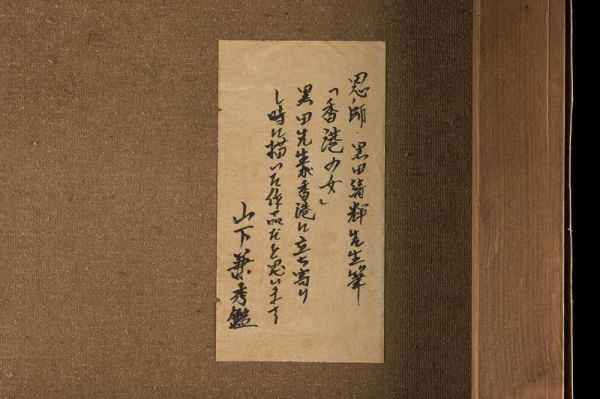 恩師・黒田清輝先生筆
「香港の女」
黒田先生が香港に立ち寄り
し時に描いた作品だと思います
山下兼秀鑑